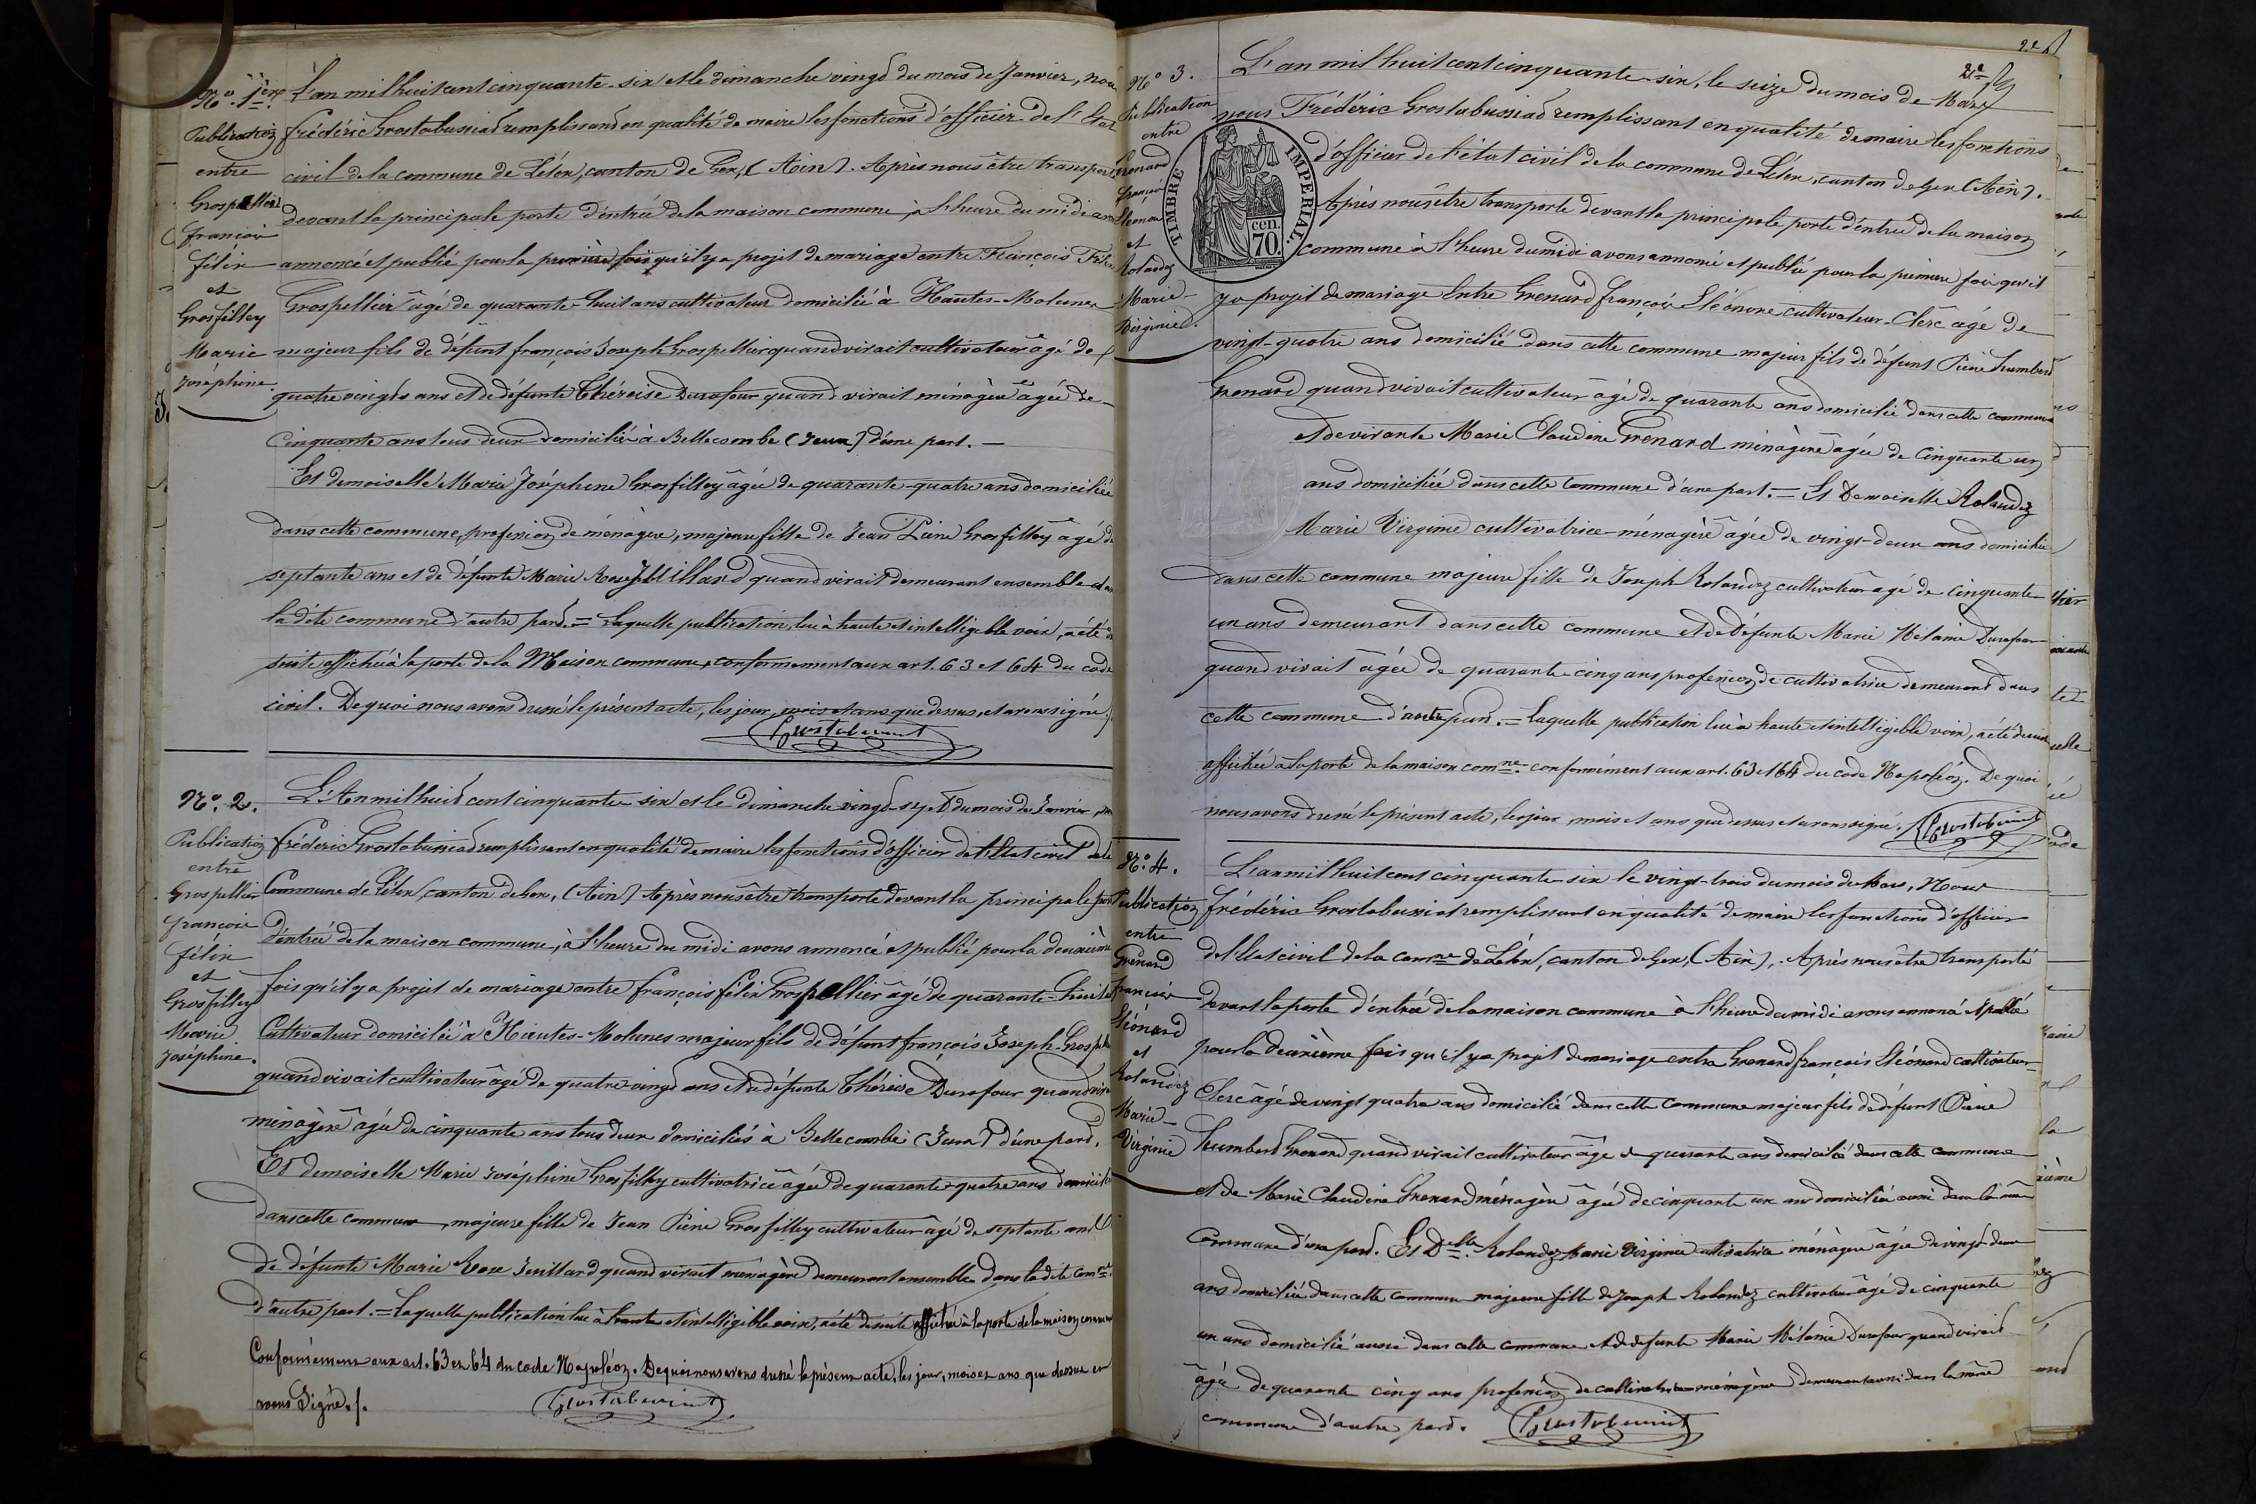 N.º 1er.
Publication
entre
Grospellier
françois
félix
et
Grosfilley
Marie
Joséphine.
L'an mil huit cent cinquante-six et le dimanche vingt du mois de Janvier, nous
frédéric Grostabussiat remplissant en qualité de maire les fonctions d'officier de l'Etat
civil de la commune de Lélex, canton de Gex, (Ain). Après nous être transporté
devant la principale porte d'entrée de la maison commune, à l'heure du midi avons
annoncé et publié pour la première fois qu'il y a projet de mariage entre François Félix
Grospellier âgé de quarante-huit ans cultivateur domicilié à Hautes-Molunes
majeur fils de défunt françois Joseph Grospellier quand vivait cultivateur âgé de
quatre vingts ans et de défunte Théreise Durafour quand vivait ménagère âgée de
Cinquante ans tous deux domiciliés à Bellecombe (Jura) d'une part. —
Et demoiselle Marie Joséphine Grosfilley âgée de quarante-quatre ans domiciliée
dans cette commune, profession de ménagère, majeure fille de Jean Pierre Grosfilley âgé de
septante ans et de défunte Marie Rose Juillard quand vivait demeurant ensemble dans
la dite commune d'autre part. = Laquelle publication, lue à haute et intelligible voix, a été de
suite affichée à la porte de la Maison commune, conformément aux art. 63 et 64 du code
civil. De quoi nous avons dressé le présent acte, les jour, mois et ans que dessus, et avons signé./.
Grostabussiat
N.º 2.
Publication
entre
Grospellier
françois
félix
et
Grosfilley
Marie
Joséphine.
L'An mil huit cent cinquante-six et le dimanche vingt-sept du mois de Janvier, nous
frédéric Grostabussiat remplissant en qualité de maire les fonctions d'officier de l'Etat civil de la
Commune de Lélex, canton de Gex, (Ain) Après nous être transporté devant la principale porte
d'entrée de la maison commune, à l'heure du midi avons annoncé et publié pour la deuxième
fois qu'il y a projet de mariage entre françois félix Grospellier âgé de quarante-huit ans
Cultivateur domicilié à Hautes-Molunes majeur fils de défunt françois Joseph Grospellier
quand vivait cultivateur âgé de quatre vingt ans et de défunte Théreise Durafour quand vivait
ménagère âgée de cinquante ans tous deux domiciliés à Bellecombe (Jura) d'une part.
Et demoiselle Marie Joséphine Grosfilley cultivatrice âgée de quarante-quatre ans domiciliée
dans cette commune, majeure fille de Jean Pierre Grosfilley cultivateur âgé de septante ans et
de défunte Marie Rose Juillard quand vivait ménagère demeurant ensemble dans la dite comne.
d'autre part. = Laquelle publication lue à haute et intelligible voix, a été de suite affichée à la porte de la maison commune
Conformément aux art. 63 et 64 du code Napoléon. De quoi nous avons dressé le présent acte, les jour, mois et ans que dessus et
avons Signé./.
Grostabussiat
2e
N.º 3.
Publication
entre
Grenard
françois
Eléonore
et
Rolandez
Marie-
Virginie.
TIMBRE IMPERIAL.
cen.
70.
L'an mil huit cent cinquante-six, le seize du mois de Mars
nous Frédéric Grostabussiat remplissant en qualité de maire les fonctions
d'officier de l'état civil de la commune de Lélex, canton de Gex (Ain).
Après nous être transporté devant la principale porte d'entrée de la maison
commune à l'heure du midi avons annoncé et publié pour la première fois qu'il
y a projet de mariage Entre Grenard françois Eléonore cultivateur-Clerc âgé de
vingt-quatre ans domicilié dans cette commune majeur fils de défunt Pierre Humbert
Grenard quand vivait cultivateur âgé de quarante ans domicilié dans cette commune
et de vivante Marie Claudine Grenard ménagère âgée de cinquante un
ans domiciliée dans cette commune d'une part. = Et Demoiselle Rolandez
Marie Virginie cultivatrice-ménagère âgée de vingt-deux ans domiciliée
dans cette commune majeure fille de Joseph Rolandez cultivateur âgé de cinquante-
un ans demeurant dans cette commune et de défunte Marie Mélanie Durafour
quand vivait âgée de quarante-cinq ans profession de cultivatrice demeurant dans
cette commune d'autre part. = Laquelle publication lue à haute et intelligible voix, a été de suite
affichée à la porte de la maison comne. conformément aux art. 63 et 64 du code Napoléon. De quoi
nous avons dressé le présent acte, les jour, mois et ans que dessus et avons signé.
Grostabussiat
N.º 4.
Publication
entre
Grenard
François
Eléonard
et
Rolandez
Marie-
Virginie
L'an mil huit cent cinquante-six le vingt-trois du mois de Mars, Nous
frédéric Grostabussiat remplissant en qualité de maire les fonctions d'officier
de l'Etat civil de la comne de Lélex, canton de Gex, (Ain), Après nous être transporté
devant la porte d'entrée de la maison commune à l'heure du midi avons annoncé et publié
pour la deuxième fois qu'il y a projet de mariage entre Grenard françois Eléonard cultivateur-
Clerc âgé de vingt quatre ans domicilié dans cette commune majeur fils de défunt Pierre
humbert Grenard quand vivait cultivateur âgé de quarante ans domicilié dans cette commune
et de Marie Claudine Grenard ménagère âgée de cinquante un ans domiciliée aussi dans la même
Commune d'une part. Et Delle. Rolandez Marie Virginie cultivatrice ménagère âgée de vingt-deux
ans domiciliée dans cette commune majeure fille de Joseph Rolandez cultivateur âgé de cinquante
un ans domicilié aussi dans cette commune et de défunte Marie Mélanie Durafour quand vivait
âgée de quarante cinq ans profession de cultivatrice ménagère demeurant aussi dans la même
commune d'autre part.
Grostabussiat